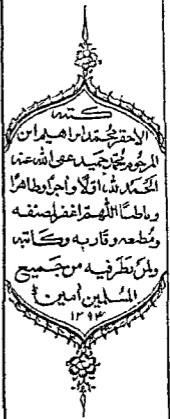 كتبه
الاحقر محمد ابراهيم ابن
المرحوم محمد حميد عفى الله عنه
الحمد لله اوّلاً وآخراً وظاهراً
وباطناً اللهم اغفر لمصنفه
ومطعه وقاريه وكاتبه
ولمن نظر فيه من جميع
المسلمين آمين
١٢٩٣